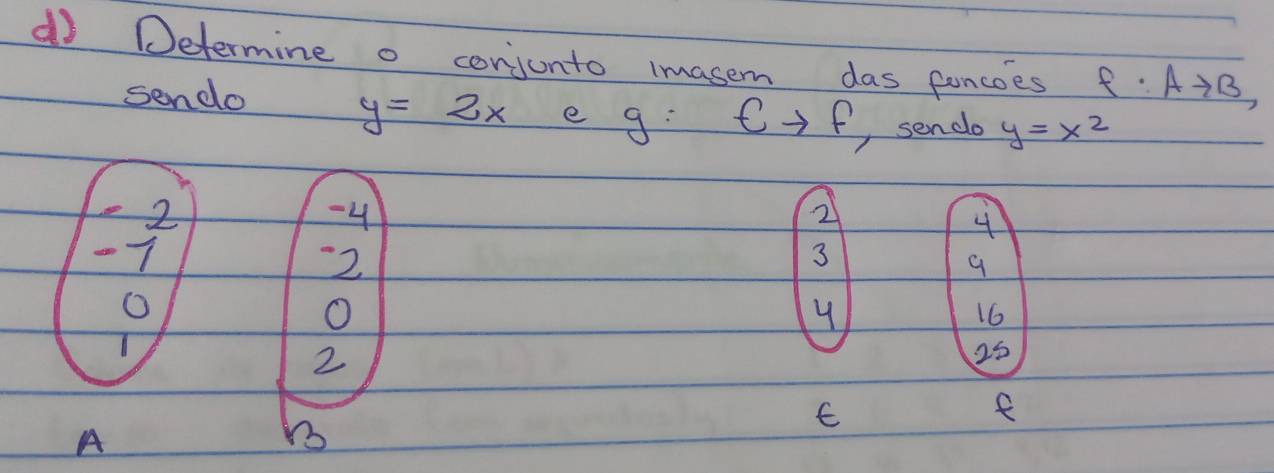 d) Determine o conjunto imagem das funcões f : A→B,
sendo y = 2x e g : E → F, sendo y = x²
-2 -4 2 4
-1 -2 3 9
0 0 4 16
1 2 25
A B E F